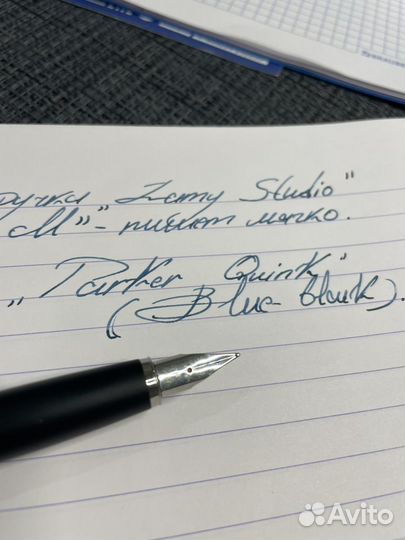 ручка „Lamy Studio"
„M" - пишет мягко.
„Parker Quink"
(Blue-black).
Avito